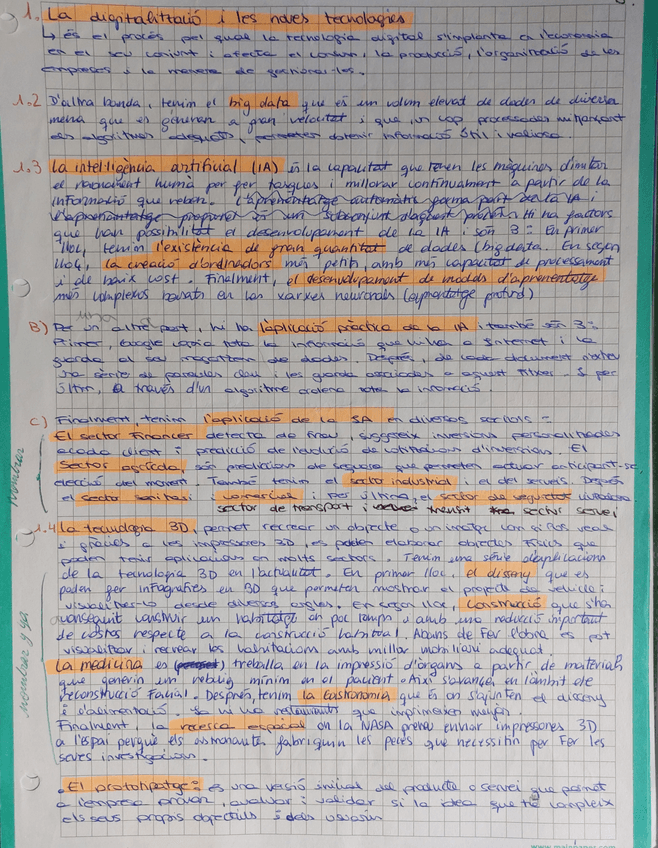 1. La digitalització i les noves tecnologies
↳ és el procés pel qual la tecnologia digital s'implanta en l'economia
en el seu conjunt i afecta el consum, la producció, l'organització de les
empreses i la manera de gestionar-les.
1.2 D'altra banda, tenim el big data que és un volum elevat de dades de diversa
mena que es generan a gran velocitat i que, un cop processades mitjançant
els algoritmes adequats, permeten obtenir informació útil i valiosa.
1.3 La intel·ligència artificial (IA) és la capacitat que tenen les màquines d'imitar
el raonament humà per fer tasques i millorar contínuament a partir de la
informació que reben. L'aprenentatge automàtic forma part de la IA i
l'aprenentatge profund és un subconjunt d'aquest Hi ha factors
que han possibilitat el desenvolupament de la IA i són 3: En primer
lloc, tenim l'existència de gran quantitat de dades (big data. En segon
lloc, la creació d'ordinadors més petits, amb més capacitat de processament
i de baix cost. Finalment, el desenvolupament de models d'aprenentatge
més complexos basats en les xarxes neuronals (aprenentatge profund)
B) Per un altre part, hi ha l'aplicació pràctica de la IA i també són 3:
Primer, Google copia tota la informació que hi ha a Internet i la
guarda al seu magatzem de dades. Després, de cada document
una sèrie de paraules clau i les guarda associades a aquest fitxer. I per
últim, a través d'un algoritme ordena tota la informació.
C) Finalment, tenim l'aplicació de la IA en diversos sectors:
El sector financer detecta de frau, suggereix inversions personalitzades
a cada client i predicció de l'evolució de d'inversions. El
Sector agrícola, són prediccions de que permeten actuar anticipant-se
elecció del moment. També tenim el sector industrial i el del serveis. Després
el sector sanitari comercial i per últim, el sector de
sector de transport i sector servei
Nombrar
1.4 La tecnologia 3D, permet recrear un objecte o un imatge com si fos real
i gràcies a les impressores 3D, es poden elaborar objectes físics que
poden tenir aplicacions en molts sectors. Tenim una sèrie d'aplicacions
de la tecnologia 3D en l'actualitat. En primer lloc, el disseny que es
poden fer infografies en 3D que permeten mostrar el projecte de vehicle i
visualitzar-lo desde diversos angles. En segon lloc, Construcció que s'ha
aconseguit construir un habitatge en poc temps i amb una reducció important
de costos respecte a la construcció habitual. Abans de fer l'obra es pot
visualitzar i recrear les habitacions amb millor mobiliari adequat.
La medicina es treballa en la impressió d'òrgans a partir de materials
que generin un rebuig mínim en el pacient. Així s'avança en l'àmbit de
reconstrucció facial. Després, tenim la Gastronomia que és on s'ajunten el disseny
i l'alimentació. Ja hi ha restaurants que imprimeixen
Finalment, la recerca espacial on la NASA preveu enviar impressores 3D
a l'espai perquè els astronautes fabriquin les peces que necessitin per fer les
seves investigacions.
nombrar y ya
El prototipatge: és una versió inicial del producte o servei que permet
a l'empresa provar, avaluar i validar si la idea que té compleix
els seus propis objectius i dels usuaris